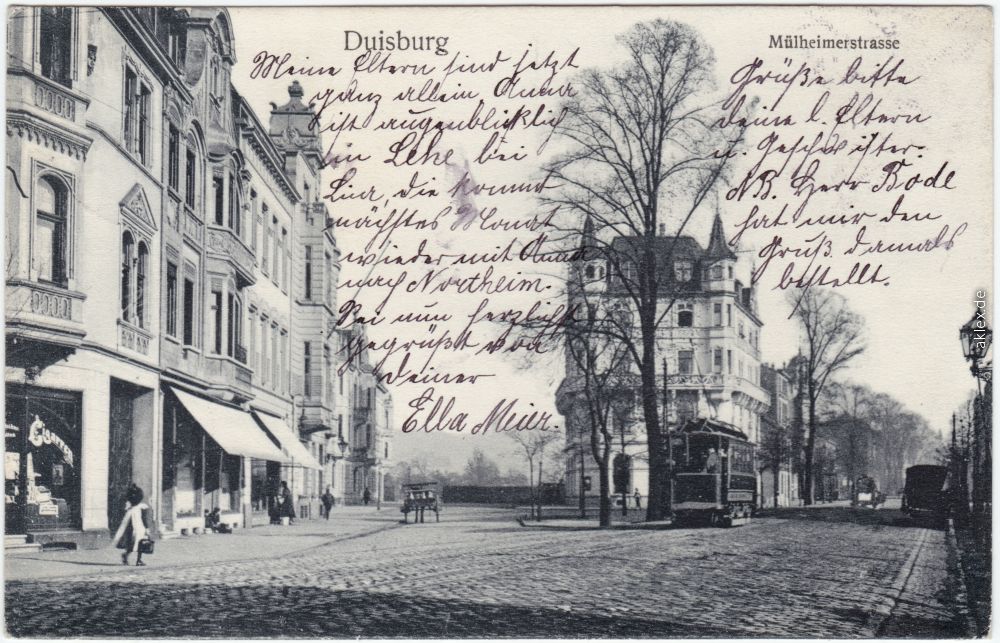 Duisburg
Mülheimerstrasse
Meine Eltern sind jetzt
ganz allein Anna
ist augenblicklich
in Lehe bei
die kommt
nächstes Monat
wieder mit Anna
nach Northeim.
Bei nun herzlichst
gegrüßt von
deiner
Ella Meier.
Grüße bitte
deine l. Eltern
u. Geschwister.
NB. Herr Bode
hat mir den
Gruß damals
bestellt.
aklex.de